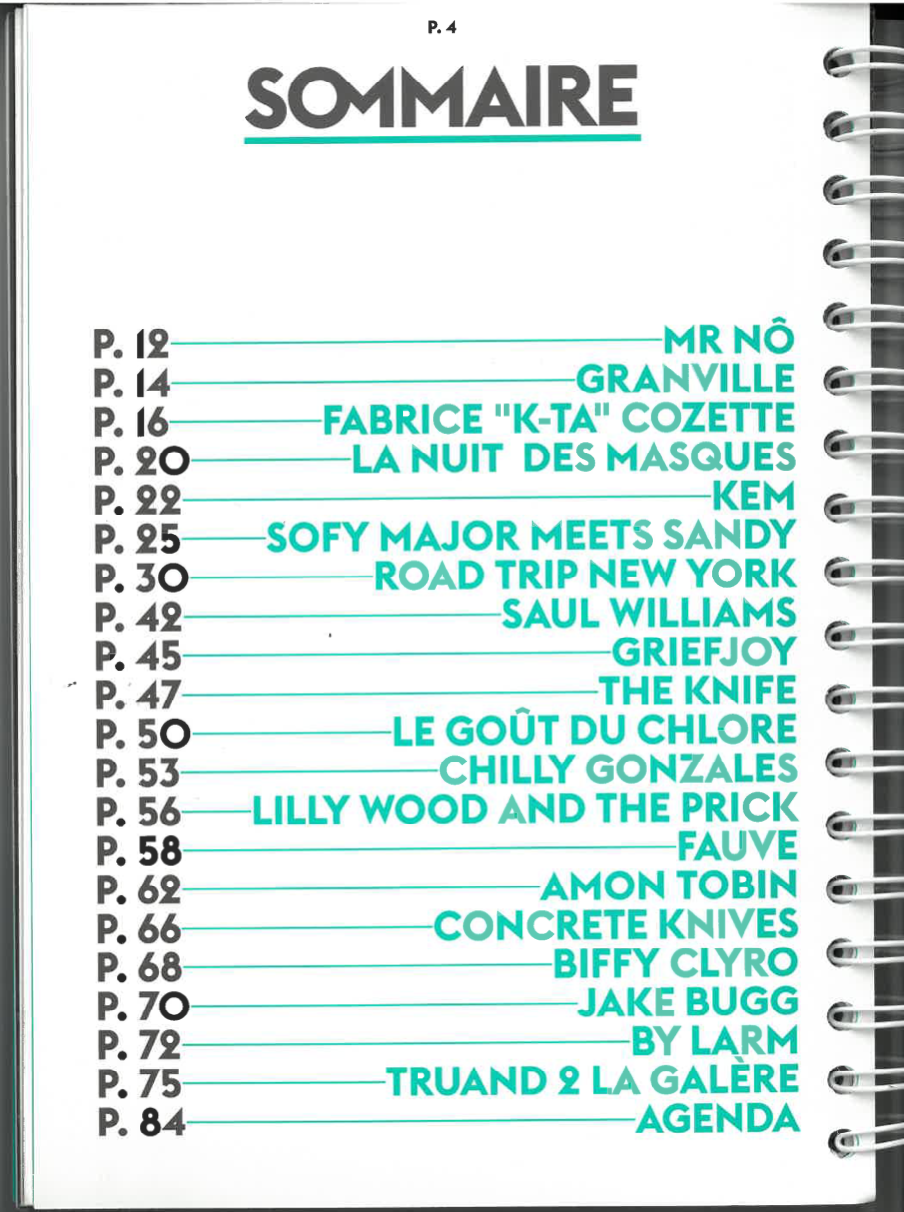 P. 4
SOMMAIRE
P. 12 MR NÔ
P. 14 GRANVILLE
P. 16 FABRICE "K-TA" COZETTE
P. 20 LA NUIT DES MASQUES
P. 22 KEM
P. 25 SOFY MAJOR MEETS SANDY
P. 30 ROAD TRIP NEW YORK
P. 42 SAUL WILLIAMS
P. 45 GRIEFJOY
P. 47 THE KNIFE
P. 50 LE GOÛT DU CHLORE
P. 53 CHILLY GONZALES
P. 56 LILLY WOOD AND THE PRICK
P. 58 FAUVE
P. 62 AMON TOBIN
P. 66 CONCRETE KNIVES
P. 68 BIFFY CLYRO
P. 70 JAKE BUGG
P. 72 BY LARM
P. 75 TRUAND 2 LA GALÈRE
P. 84 AGENDA